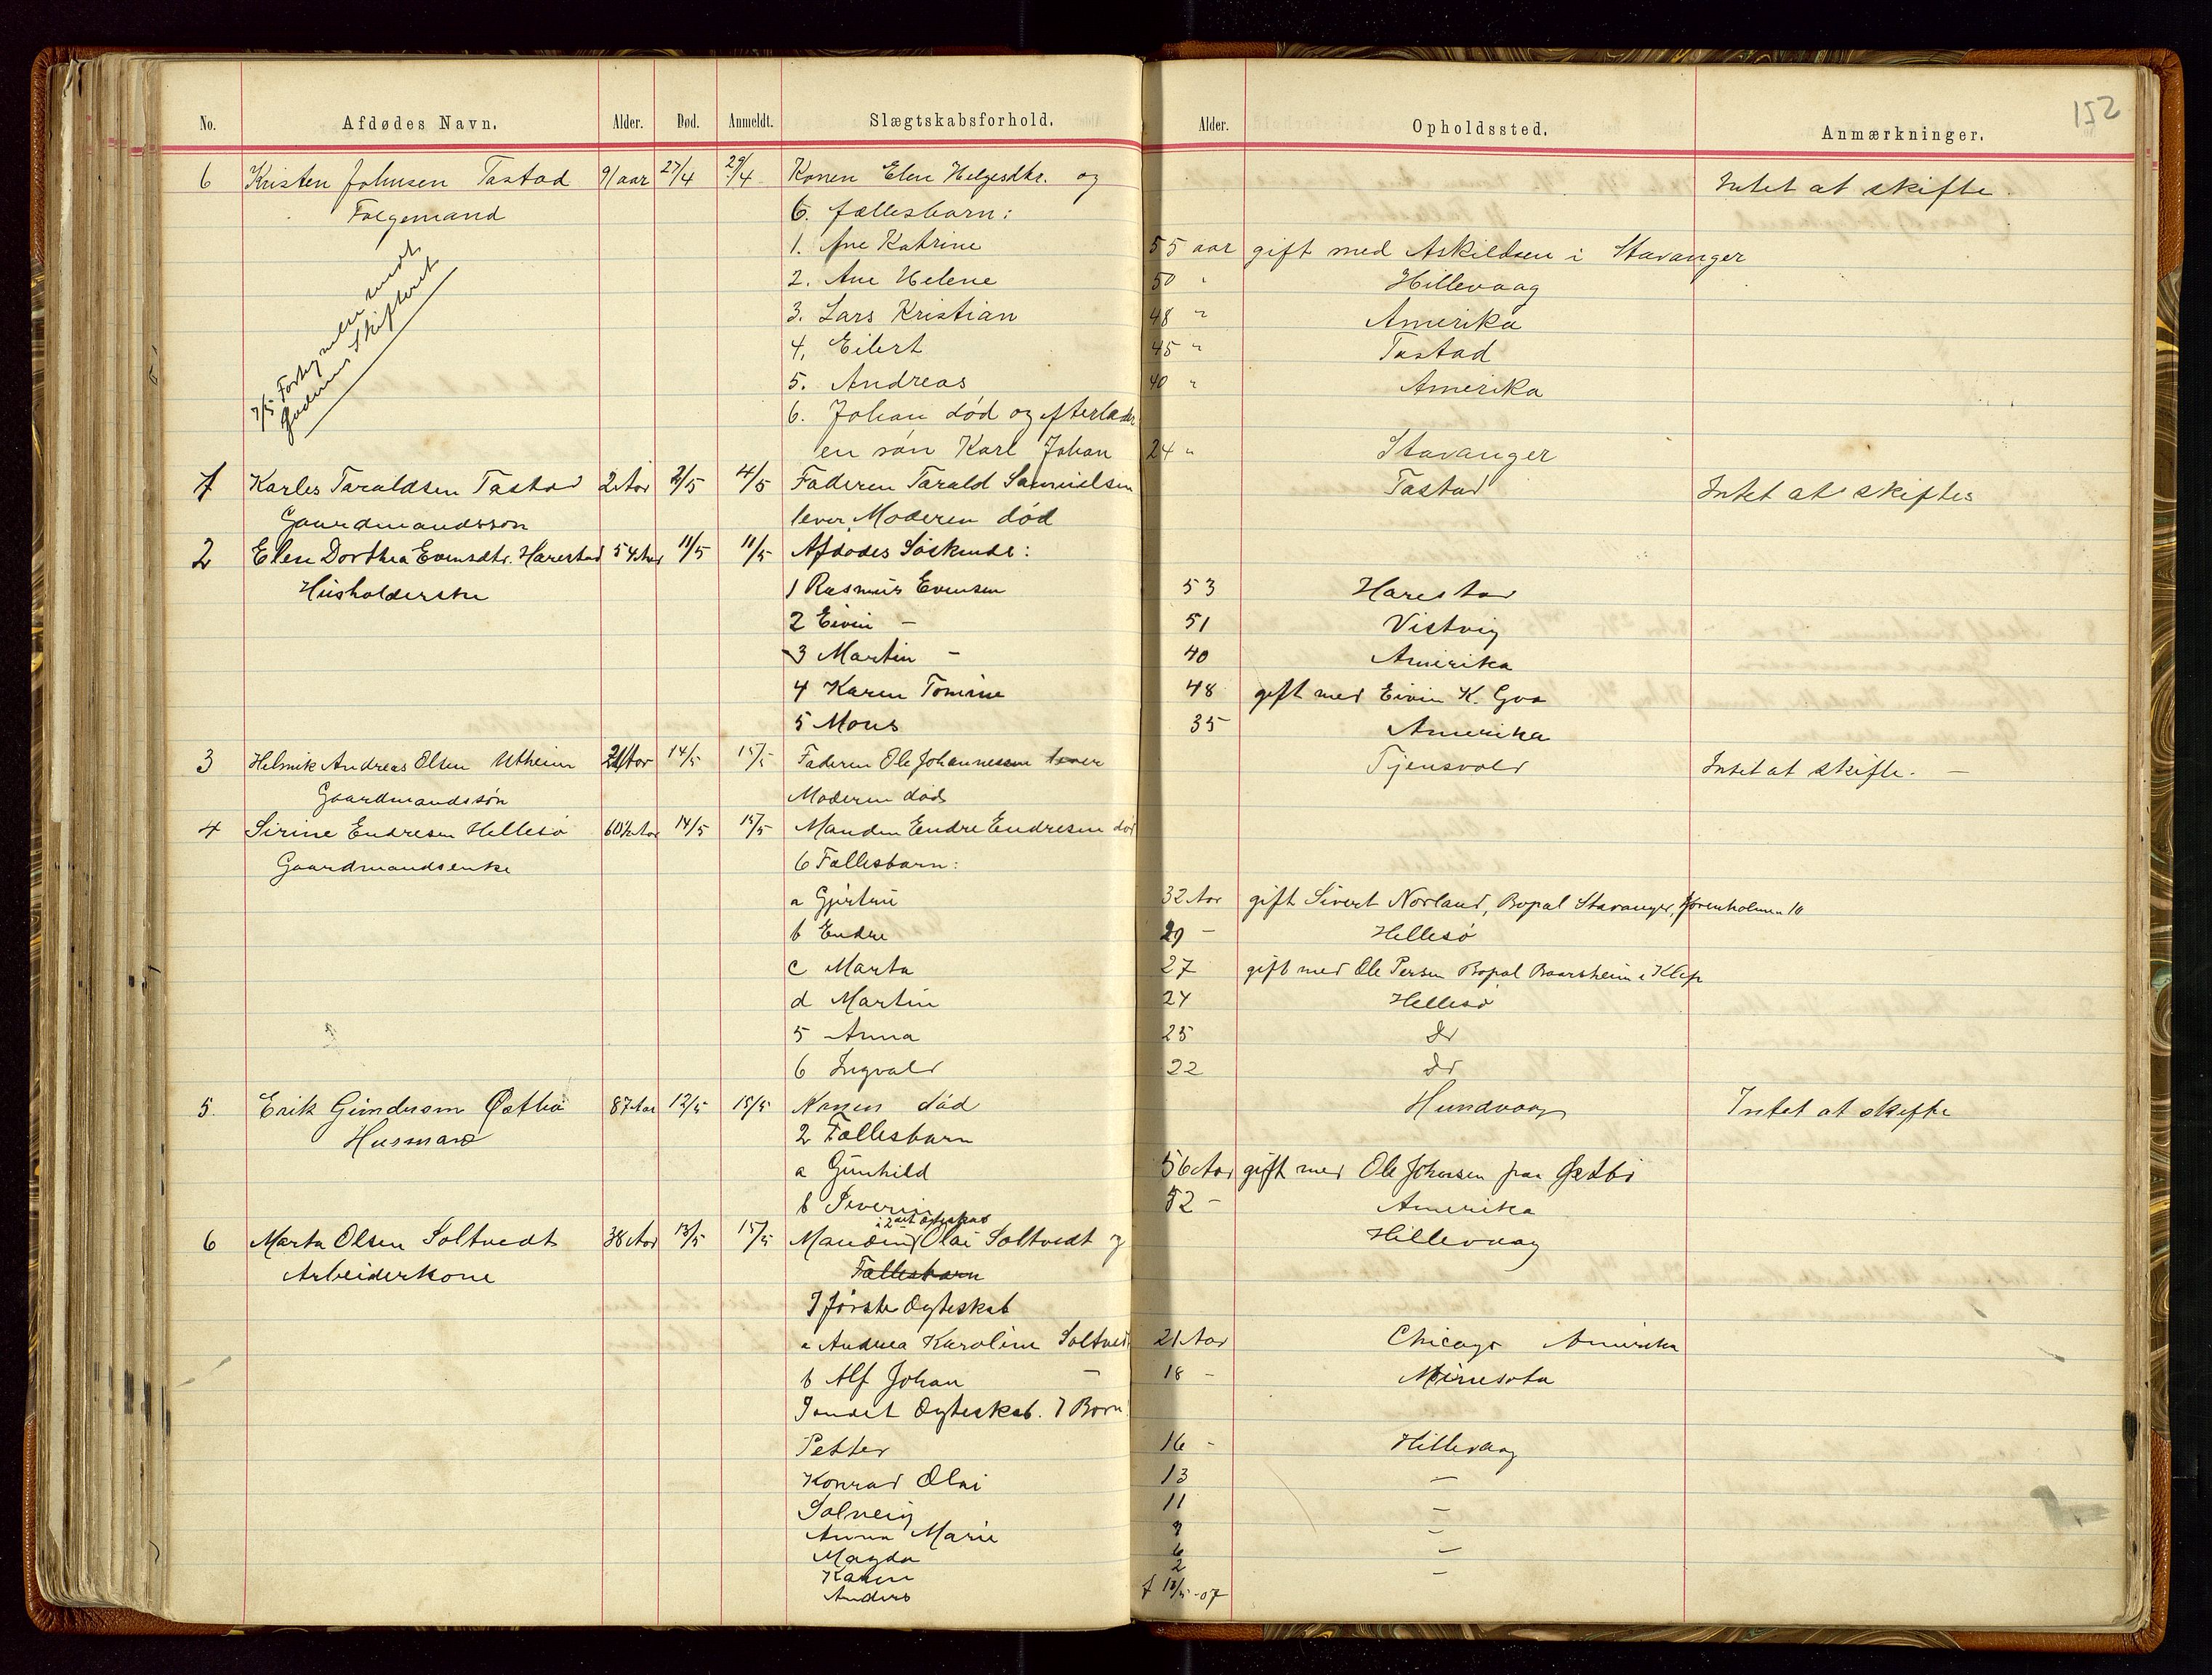 152
No. Afdødes Navn. Alder. Død. Anmeldt. Slægtskabsforhold. Alder. Opholdssted. Anmærkninger.
6 Kristen Johnsen Tastad 91 aar 27/4 29/4 Konen Elen Helgesdtr. og Intet at skifte.
Folgemand 6. fællesbarn:
1. Ane Katrine 55 aar gift med Askildsen i Stavanger
2. Ane Helene 50 " Hillevaag
3. Lars Kristian 48 " Amerika
4. Eilert 45 " Tastad
5. Andreas 40 " Amerika
7/5
6. Johan død og efterlader
en søn Karl Johan 24 " Stavanger
1 Karles Taraldsen Tastad 2 Aar 2/5 4/5 Faderen Tarald Samuelsen Tastad Intet at skiftes
Gaardmandssøn lever Moderen død
2 Elen Dorthea Evensdtr. Harestad 54 Aar 11/5 11/5 Afdødes Søskende:
Husholderske 1 Rasmus Evensen 53 Harestad
2 Eivin – 51 Vistvig
3 Martin – 40 Amerika
4 Karen Tomine 48 gift med Eivin K. Goa
5 Mons 35 Amerika
3 Helmik Andreas Olsen Utheim 21 Aar 14/5 15/5 Faderen Ole Johannessen lever Tjensvold Intet at skifte. –
Gaardmandssøn Moderen død
4 Sirine Endresen Hellesø 60½ Aar 14/5 15/5 Manden Endre Endresen død
Gaardmandsenke 6 Fællesbarn:
a Gjertine 32 Aar gift Sivert Norland, Bopæl Stavanger, 10
b Endre 29 – Hellesø
c Marta 27 gift med Ole Persen Bopæl Baarsheim i Klep
d Martin 24 Hellesø
5 Anna 25 do
6 Ingvald 22 do
5. Erik Gundersen Østbø 87 Aar 12/5 15/5 Konen død Hundvaag Intet at skifte
Husmand 2 Fællesbarn
a Gunhild 56 Aar gift med Ole Johnsen paa Østbø
b Severin 52 – Amerika
i 2det Ægteskab
6 Marta Olsen Soltvedt 38 Aar 13/5 15/5 Manden Olai Soltvedt og Hillevaag
Arbeiderkone Fællesbarn
I første Ægteskab
a Andrea Karoline Soltvedt 21 Aar Chicago Amerika
b Alf Johan – 18 – Minesota
I andet Ægteskab. 7 Børn
Petter 16 – Hillevaag
Konrad Olai 13 –
Solveig 11 –
Anna Marie 9 –
Magda 6 –
Karen 2 –
Anders f 13/5-07